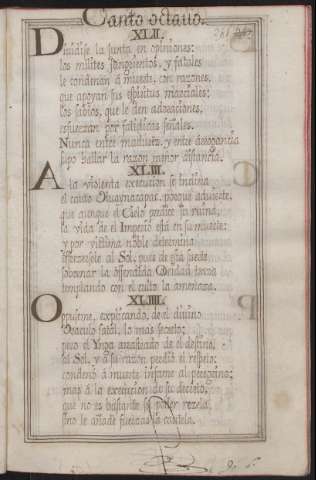 Canto octauo.
XLII.
Diuidese la junta en opiniones:
los milites sangrientos, y fatales
le condenan à muerte, con razones,
que apoyan sus espiritus marciales:
los sabios, que le den adoraciones,
esfuerzan por fatidicas señales.
Nunca entre madurez, y entre arrogancia
supo hallar la razon menor distancia.
XLIII.
A la violenta execucion se inclina
el caido Guaynacapac, porque aduierte,
que aunque el Cielo predice su ruina,
la vida de el Imperio està en su muerte:
y por victima noble determina
ofrecersele al Sol, pues de esta suerte
la offendida Deidad
templando con el culto la amenaza.
XLIIII.
Opusieme, explicando, de el diuino
Oraculo fatal, lo mas secreto;
pero el Ynga arrastrado de el destino,
al Sol, y a su razon perdio el respeto:
condenò à muerte infame al peregrino;
mas à la execucion de su decreto,
que no es bastante su poder rezela,
si no le añade fuerzas la cautela.